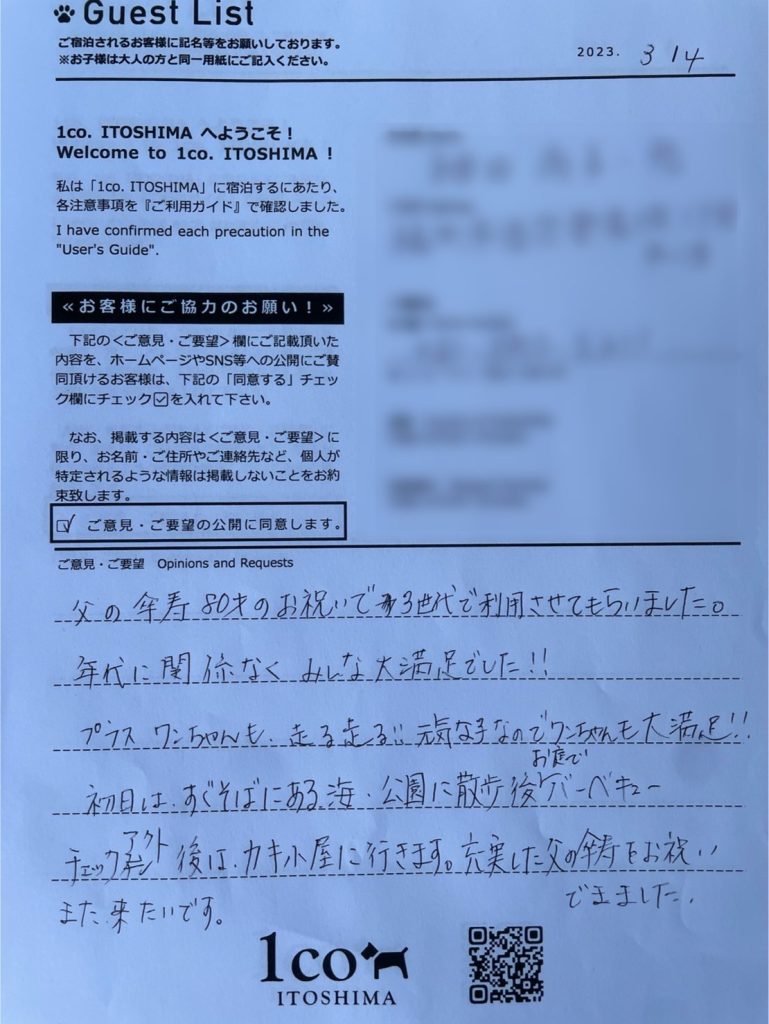 Guest List
ご宿泊されるお客様に記名等をお願いしております。
※お子様は大人の方と同一用紙にご記入ください。
2023. 3 14
1co. ITOSHIMA へようこそ！
Welcome to 1co. ITOSHIMA !
私は「1co. ITOSHIMA」に宿泊するにあたり、
各注意事項を『ご利用ガイド』で確認しました。
I have confirmed each precaution in the
"User's Guide".
≪お客様にご協力のお願い！≫
下記の＜ご意見・ご要望＞欄にご記載頂いた
内容を、ホームページやSNS等への公開にご賛
同頂けるお客様は、下記の「同意する」チェッ
ク欄にチェック☑を入れて下さい。
なお、掲載する内容は＜ご意見・ご要望＞に
限り、お名前・ご住所やご連絡先など、個人が
特定されるような情報は掲載しないことをお約
束致します。
☑ ご意見・ご要望の公開に同意します。
ご意見・ご要望 Opinions and Requests
父の傘寿80才のお祝いで3世代で利用させてもらいました。
年代に関係なくみんな大満足でした!!
プラスワンちゃんも、走る走る!!元気な子なのでワンちゃんも大満足!!
初日は、すぐそばにある海、公園に散歩後お庭でバーベキュー
チェックアウト後は、カキ小屋に行きます。充実した父の傘寿をお祝い
できました。
また来たいです。
1co
ITOSHIMA